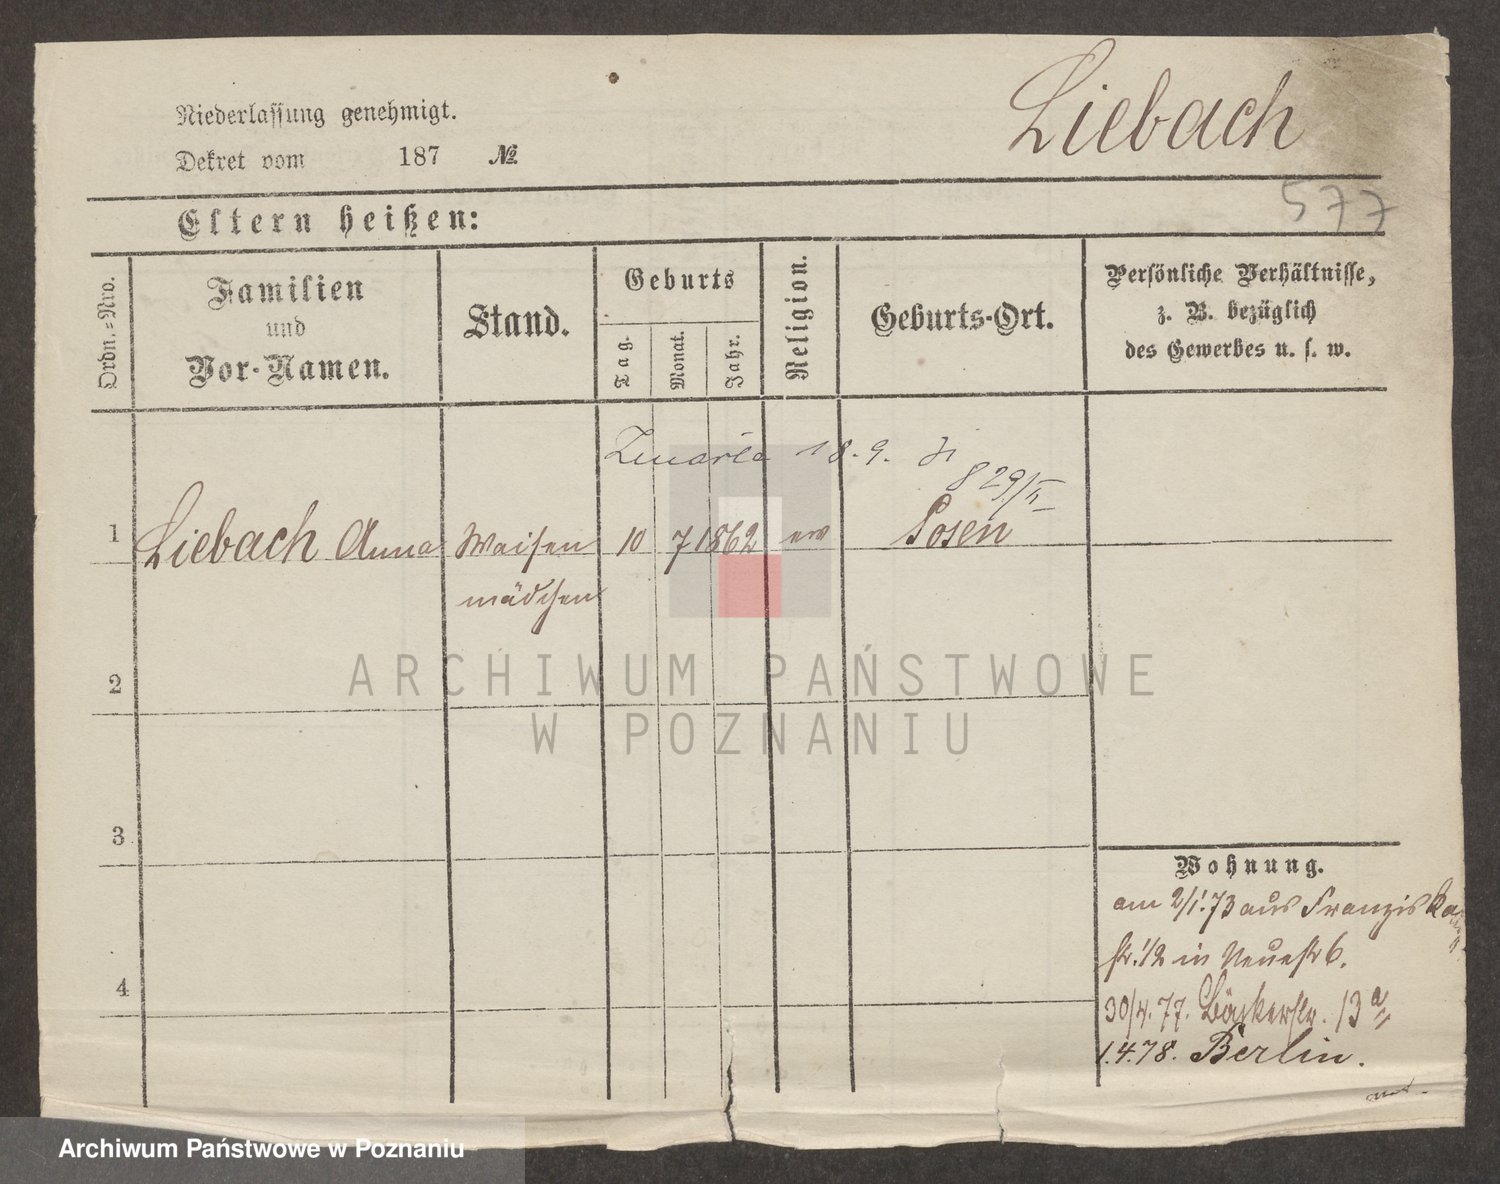 Liebach
Niederlassung genehmigt.
Dekret vom 187 №
577
Eltern heißen:
Ordn.-Nro.
Familien
und
Vor-Namen.
Stand.
Geburts
Tag.
Monat.
Jahr.
Religion.
Geburts-Ort.
Persönliche Verhältnisse,
z. B. bezüglich
des Gewerbes u. s. w.
Zmarła 18. 9. 31
829/II
1 Liebach Anna Waisen 10 7 1862 ev Posen
mädchen
2
3
4
Wohnung.
am 2/1.73 aus Franziskaner
str. 1/2 in Neuestr 6.
30/4.77. Bäckerstr. 13a
1.4.78. Berlin.
ARCHIWUM PAŃSTWOWE
W POZNANIU
Archiwum Państwowe w Poznaniu